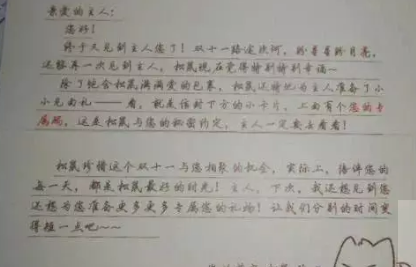 亲爱的主人：
您好！
终于又见到主人您了！双十一路途坎坷，盼星星盼月亮，
还能再一次见到主人，松鼠现在觉得特别特别幸福~
除了饱含松鼠满满爱的包裹，松鼠还特地为主人准备了小
小见面礼——看，就是信封下方的小卡片，上面有个您的专
属码，这是松鼠与您的秘密约定，主人一定要去看看！
松鼠珍惜这个双十一与您相聚的机会，实际上，陪伴您的
每一天，都是松鼠最好的时光！主人，下次，我还想见到您
还想为您准备更多更多专属您的礼物！让我们分别的时间变
得短一点吧~~